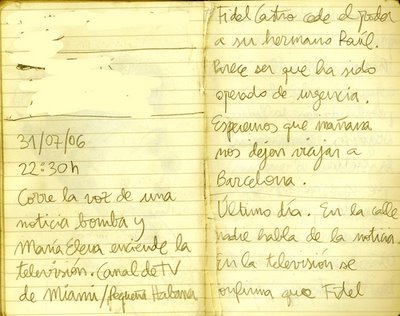 31/07/06
22:30h
Corre la voz de una
noticia bomba y
María Elena enciende la
televisión. Canal de TV
de Miami/Pequeña Habana
Fidel Castro cede el poder
a su hermano Raúl.
Parece ser que ha sido
operado de urgencia.
Esperemos que mañana
nos dejen viajar a
Barcelona.
Último día. En la calle
nadie habla de la noticia.
En la television se
confirma que Fidel